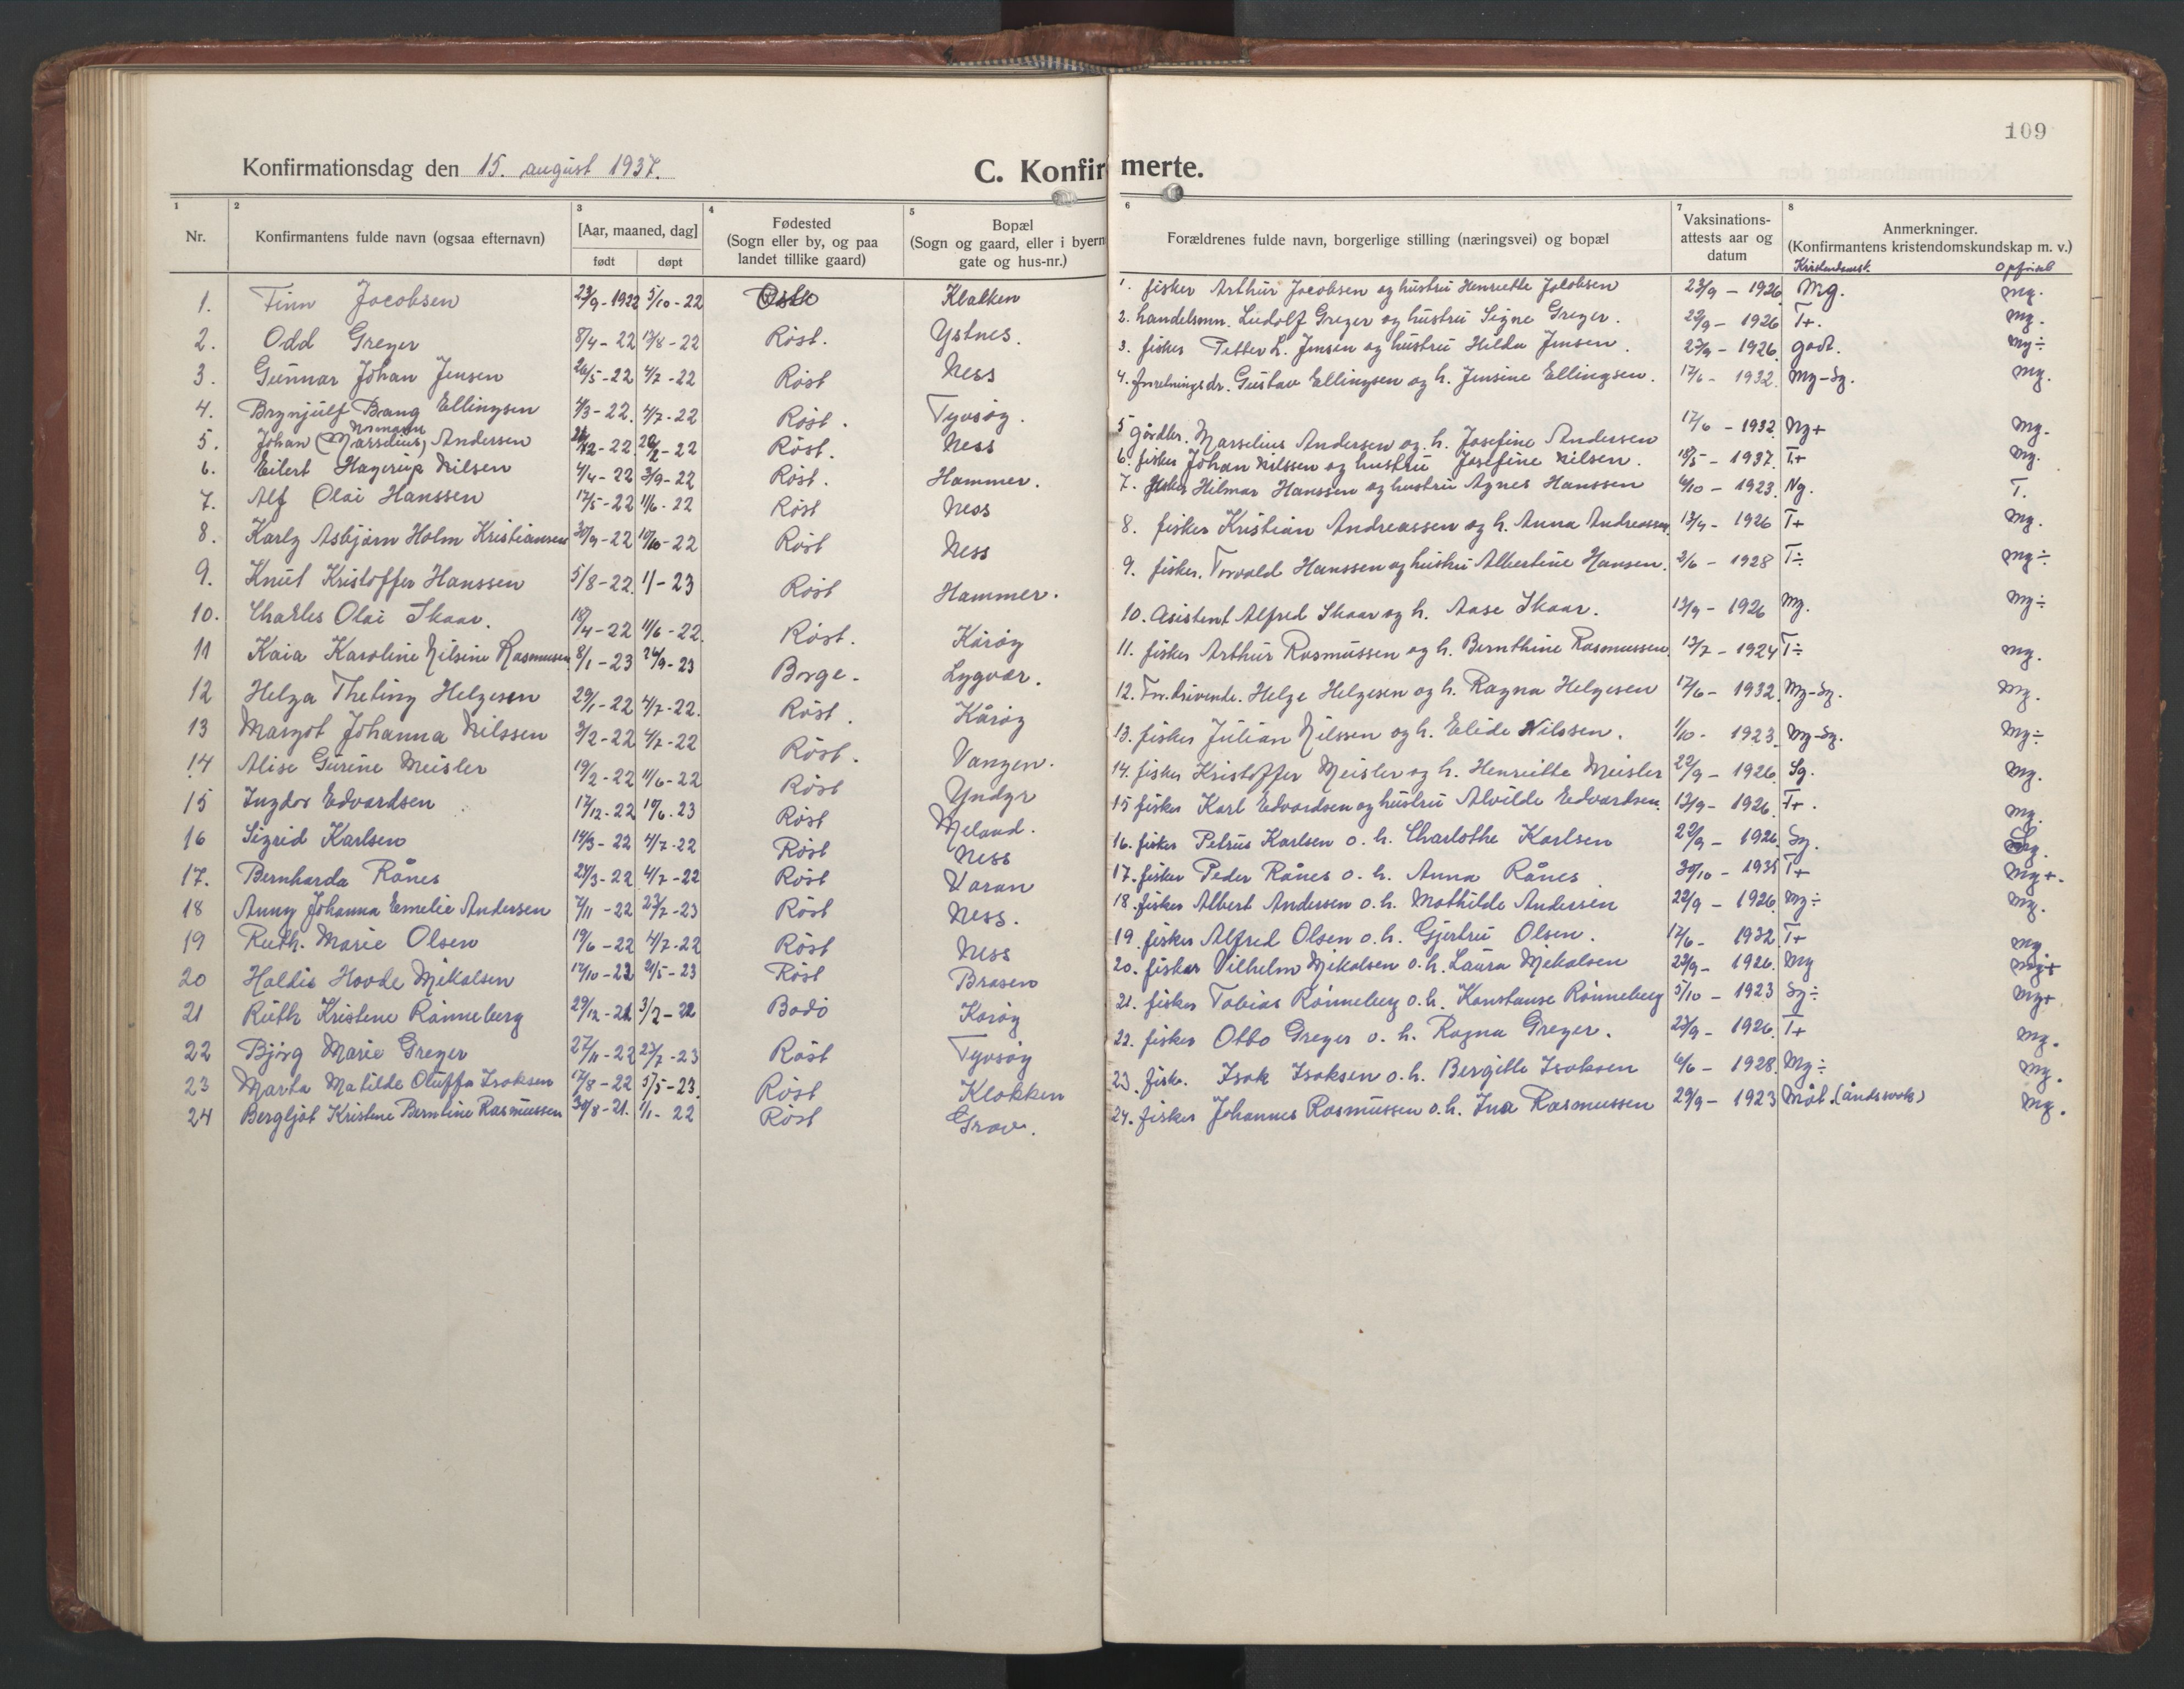 109
Konfirmationsdag den 15. august 1937. C. Konfirmerte.
1 2 3 4 5 6 7 8
Nr. Konfirmantens fulde navn (ogsaa efternavn) [Aar, maaned, dag] født døpt Fødested (Sogn eller by, og paa landet tillike gaard) Bopæl (Sogn og gaard, eller i byern gate og hus-nr.) Forældrenes fulde navn, borgerlige stilling (næringsvei) og bopæl Vaksinations-attests aar og datum Anmerkninger. (Konfirmantens kristendomskundskap m. v.)
Kristendomsk. Opførsel
1. Finn Jacobsen 23/9-1922 5/10-22 Klakken 1. fisker Arthur Jacobsen og hustru Henriette Jacobsen 23/9 - 1926 Mg. mg.
2. Odd Greger 8/4-22 13/8-22 Röst. Ystnes. 2. handelsmn. Ludolf Greger og hustru Signe Greger. 22/9 - 1926 T+. mg.
3. Gunnar Johan Jensen 26/5-22 4/7-22 Röst Ness 3. fisker Petter L. Jensen og hustru Hilda Jensen. 23/9 - 1926. godt. mg÷
4. Brynjulf Bang Ellingsen 4/3-22. 4/7-22 Röst. Tyvsöy. 4. Gustav Ellingsen og h. Jensine Ellingsen. 17/6 - 1932. Mg-Sg. mg.
5. Johan (Marselius) Normann Andersen -22. -22 Röst. Ness 5 Gårdbr. Marselius Andersen og h. Josefine Andersen 17/6 - 1932. Ng+ mg.
6. Eilert Hagerup Nilsen 4/4-22 3/9-22 Röst. Hammer. 6. fisker Johan Nilssen og hustru Josefine Nilsen. 18/5 - 1937. T+ mg.
7. Alf Olai Hanssen 17/5-22 11/6-22 Röst Ness 7. fisker Hilmar Hanssen og hustru Agnes Hanssen 4/10 - 1923. Ng. T.
8. Karly Asbjörn Holm Kristiansen 30/9-22 10/10-22 Röst Ness 8. fisker Kristian Andreassen og h. Anna Andreassen. 13/9 - 1926 T+ mg.
9. Knut Kristoffer Hanssen 5/8-22. 1/-23 Röst Hammer. 9. fisker. Torvald Hanssen og hustru Albertine Hansen. 2/6 - 1928 T÷ mg÷
10. Charles Olai Skaar. 18/4-22 11/6-22. Röst. Kåröy 10. Asistent Alfred Skaar og h. Aase Skaar. 13/9 - 1926 Mg. mg÷
11 Kaia Karoline Nilsine Rasmussen 8/1-23 24/9-23 Borge. Lygvær. 11. fisker Arthur Rasmussen og h. Bernthine Rasmussen. 13/7 - 1924 T÷ mg.
12 Helga Theting Helgesen 29/1-22 4/7-22. Röst. Kåröy 12. Helge Helgesen og h. Ragna Helgesen 17/6 - 1932. Mg-Sg. mg.
13 Margot Johanna Nilssen 3/2-22 4/7-22 Röst. Vangen. 13. fisker Julian Nilssen og h. Elide Nilssen. 1/10 - 1923. Mg-Sg. mg÷
14 Alise Gurine Meisler 19/2-22 11/6-22 Röst Yndyr 14. fisker Kristoffer Meisler og h. Henriette Meisler 22/9 - 1926. Sg. mg.
15 Ingdor Edvardsen 17/12-22 10/6-23 Röst Meland. 15 fisker Karl Edvardsen og hustru Alvilde Edvardsen. 13/9 - 1926. T+. mg.
16 Sigrid Karlsen 14/3-22 4/7-22 Röst Ness 16. fisker Petrus Karlsen o. h. Charlothe Karlsen 22/9 - 1926. Sg.
17. Bernharda Rånes 24/3-22 4/7-22 Röst Varan 17. fisker Peder Rånes o. h. Anna Rånes 30/10 - 1935 T+ mg+.
18 Anny Johanna Emelie Andersen 7/11-22 23/7-23 Röst Ness. 18. fisker Albert Andersen o. h. Mathilde Andersen 22/9 - 1926. Mg÷ mg.
19 Ruth. Marie Olsen 19/6-22 4/7-22 Röst Ness 19. fisker Alfred Olsen o. h. Gjertru Olsen. 17/6 - 1932 T+ mg.
20 Haldis Hovde Mikalsen 17/10-22 21/5-23 Röst Brasen 20. fisker Vilhelm Mikalsen o. h. Laura Mikalsen 22/9 - 1926. Mg mg+
21 Ruth Kristene Rönneberg 29/12-21 3/2-22 Bodö Kåröy 21. fisker Tobias Rönneberg o. h. Konstanse Rönneberg 5/10 - 1923 Sg÷ mg+
22 Bjørg Marie Greger 27/11-22 23/7-23 Röst Tyvsöy 22. fisker Otto Greger o. h. Ragna Greger. 23/9 - 1926. T+ mg.
23 Marta Matilde Oluffa Isaksen 17/8-22 5/5-23. Röst Klakken 23. fisk. Isak Isaksen o. h. Bergitte Isaksen 6/6 - 1928. Mg÷ mg.
24 Bergljot Kristene Berntine Rasmussen 30/8-21. 1/1-22 Röst Grav. 24. fisker Johannes Rasmussen o. h. Ina Rasmussen 29/9 - 1923 Måt. (åndssvak) mg.